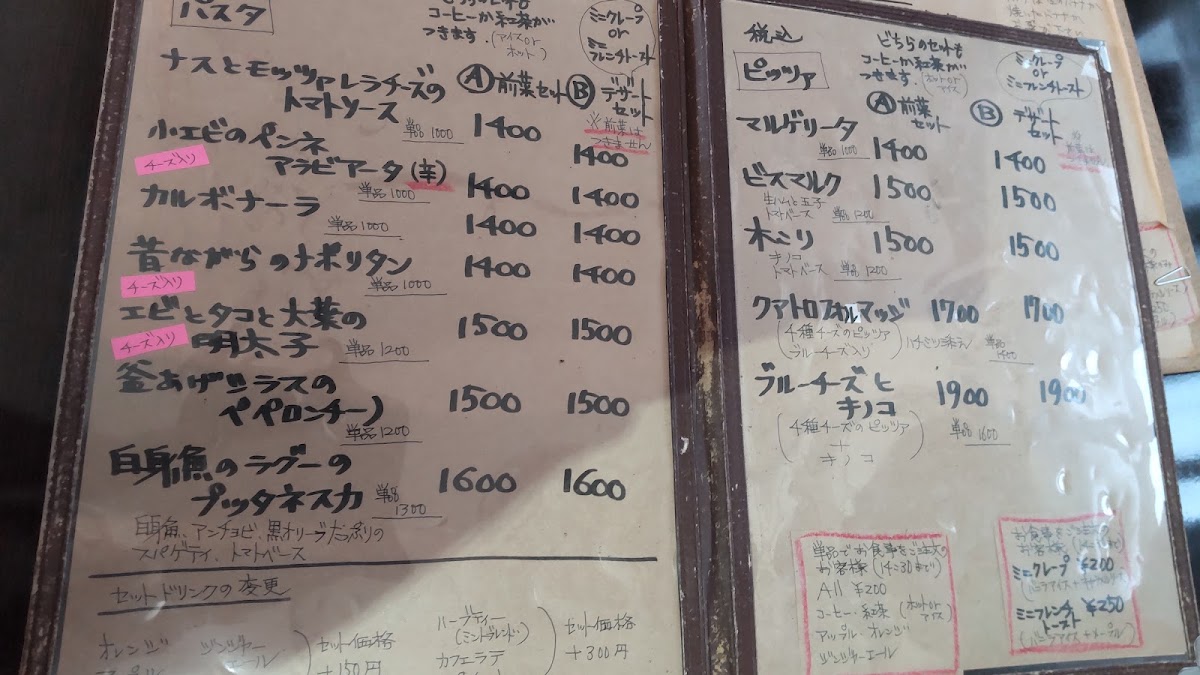 パスタ
コーヒーか紅茶が
つきます。(アイス or
ホット)
ミニクレープ
or
ミニ
フレンチトースト
Ⓐ前菜セット
Ⓑデザート
セット
※前菜は
つきません
ナスとモッツァレラチーズの
トマトソース
単品1000
1400
1400
小エビのペンネ
アラビアータ(辛)
チーズ入り
単品1000
1400
1400
カルボナーラ
単品1000
1400
1400
昔ながらのナポリタン
チーズ入り
単品1000
1400
1400
エビとタコと大葉の
明太子
チーズ入り
単品1200
1500
1500
釜あげシラスの
ペペロンチーノ
単品1200
1500
1500
白身魚のラグーの
プッタネスカ
単品
1300
1600
1600
白身魚、アンチョビ、黒オリーブたっぷりの
スパゲティ、トマトベース
セットドリンクの変更
オレンジ
ジンジャー
エール
セット価格
+150円
ハーブティー
(ミントブレンド)
カフェラテ
セット価格
+300円
税込
ピッツァ
どちらのセットも
コーヒーか紅茶が
つきます。(ホット or
アイス)
ミニクレープ
or
ミニフレンチトースト
Ⓐ前菜
セット
Ⓑ
デザート
セット
マルゲリータ
単品1000
1400
1400
ビスマルク
生ハムと玉子
トマトベース
単品1200
1500
1500
木こり
キノコ
トマトベース
単品1200
1500
1500
クアトロフォルマッジ
(4種チーズのピッツァ
ブルーチーズ入り)
ハチミツ添え
単品
1400
1700
1700
ブルーチーズと
キノコ
(4種チーズのピッツァ
+
キノコ)
単品1600
1900
1900
単品でお食事をご注文の
お客様(14:30まで)
All ¥200
コーヒー・紅茶(ホット or
アイス)
アップル・オレンジ
ジンジャーエール
お食事をご注文の
お客様
ミニクレープ ¥200
ミニフレンチ
トースト ¥250
(バニラアイス+メープル)